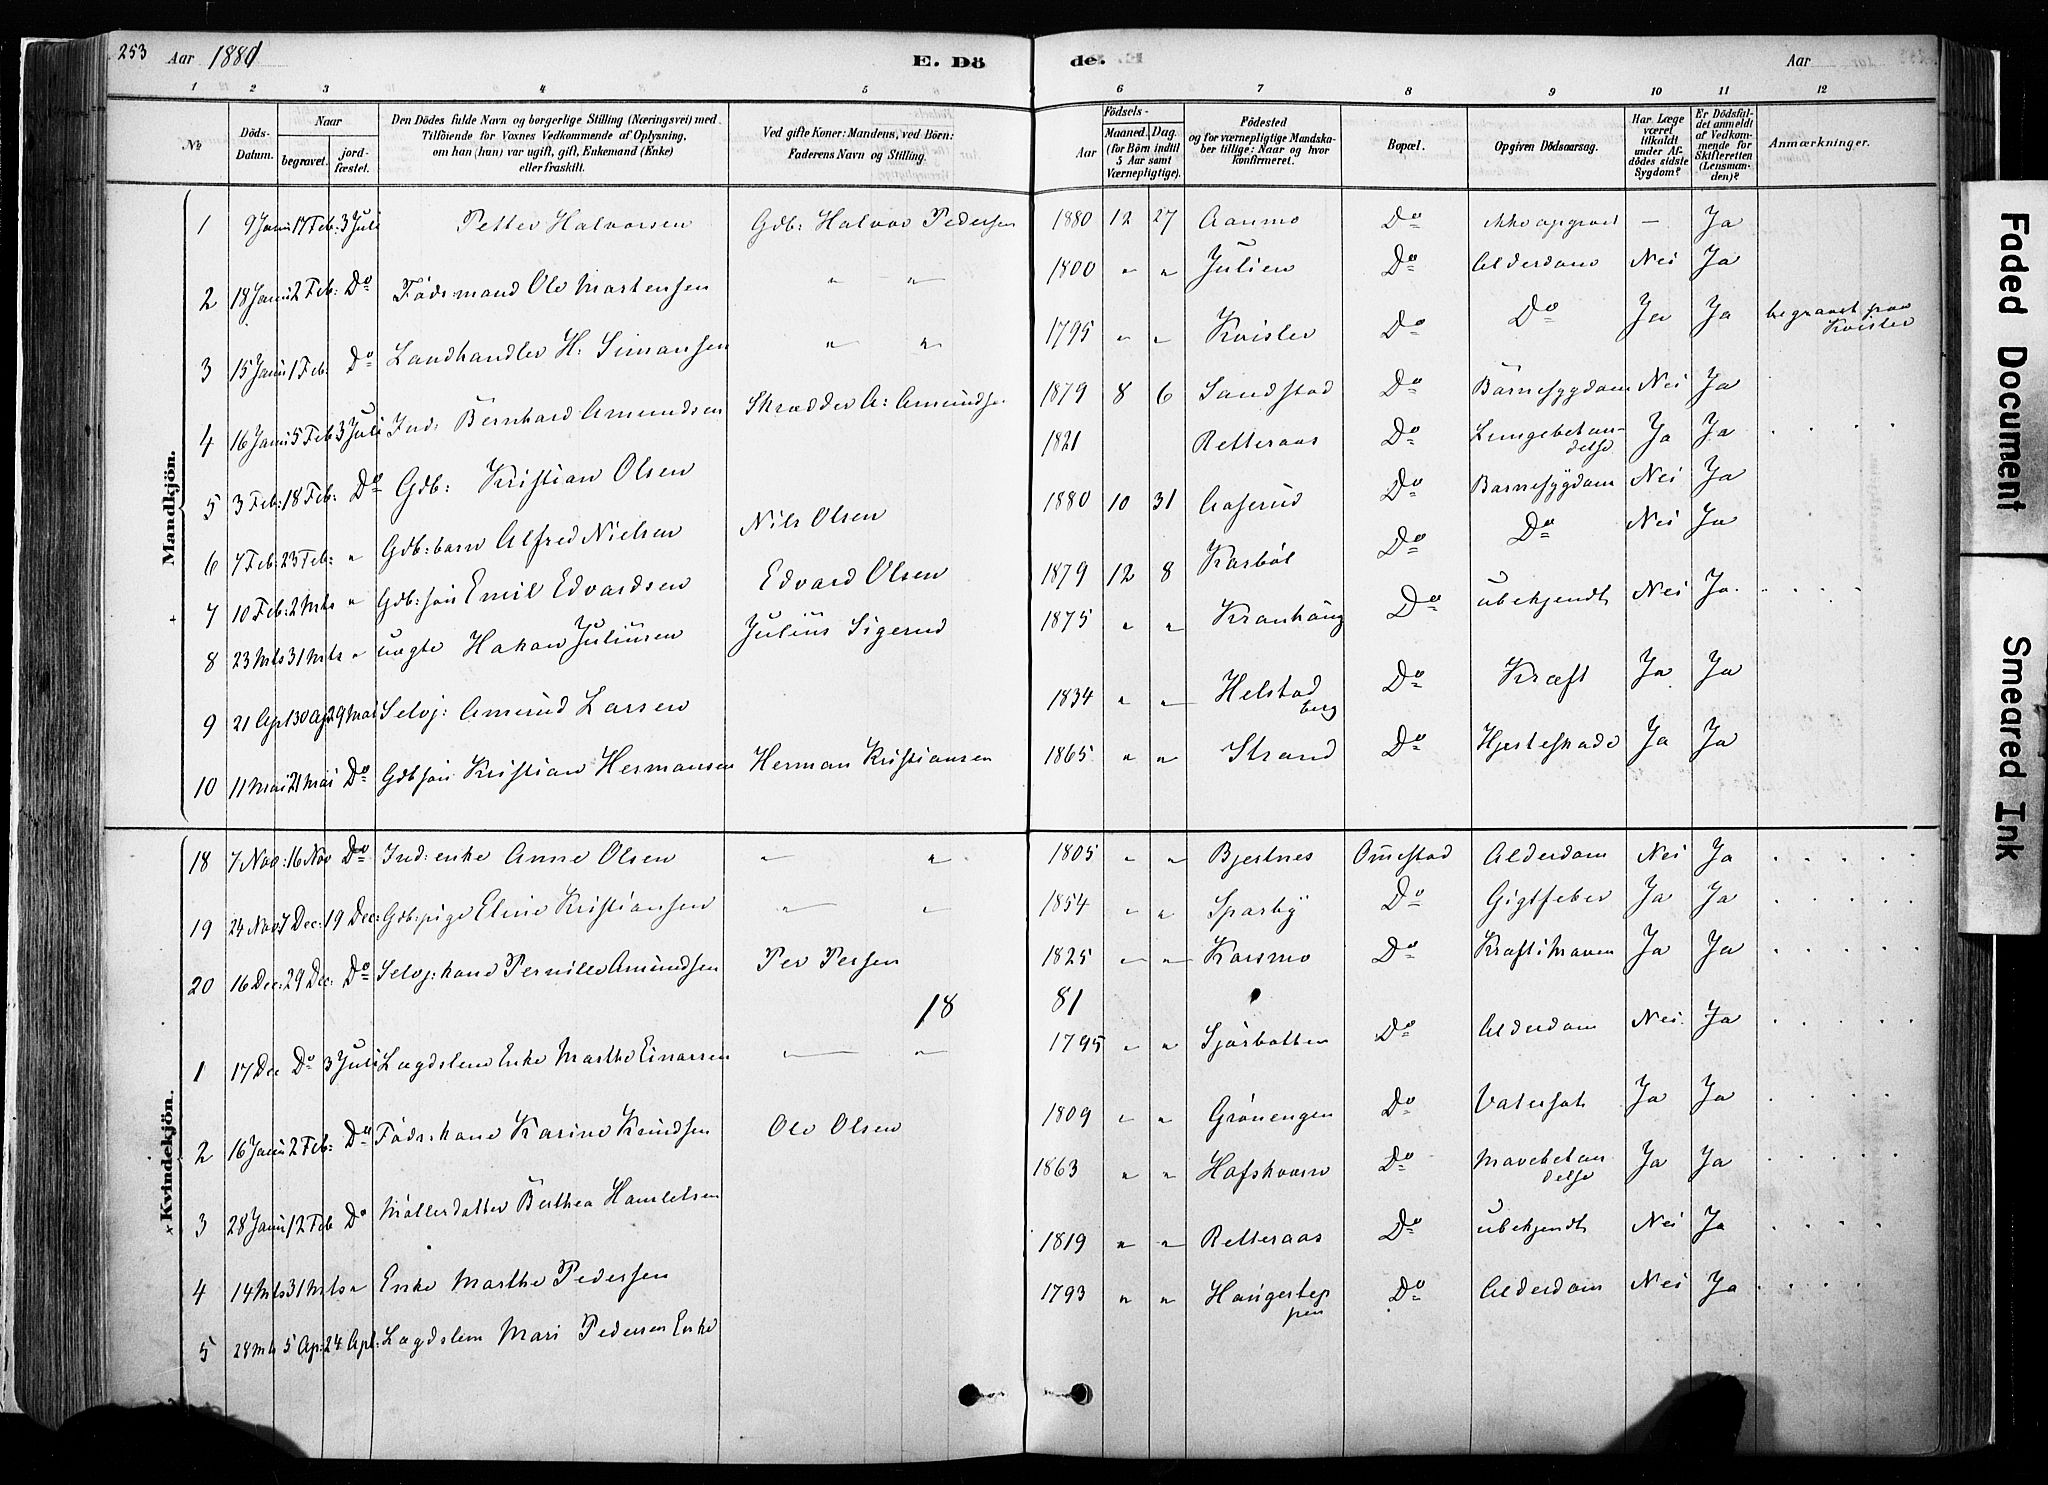 253 Aar 1881 E. Dö de. Aar
1 2 3 4 5 6 7 8 9 10 11 12
№ Döds-Datum. Naar begravet. jord-fæstet. Den Dödes fulde Navn og borgerlige Stilling (Næringsvei) med Tilföiende for Voxnes Vedkommende af Oplysning, om han (hun) var ugift, gift, Enkemand (Enke) eller fraskilt. Ved gifte Koner: Mandens, ved Börn: Faderens Navn og Stilling. Födsels- Aar Maaned. Dag. (for Börn indtil 5 Aar samt Værnepligtige). Födested og for værnepligtige Mandskaber tillige: Naar og hvor Konfirmeret. Bopæl. Opgiven Dödsaarsag. Har Læge været tilkaldt under Afdödes sidste Sygdom? Er Dödsfaldet anmeldt af Vedkommende for Skifteretten (Lensmanden)? Anmærkninger.
Mandkjön.
1 9 Janu 17 Feb: 3 Juli Petter Halvorsen Gdb: Halvor Pedersen 1880 12 27 Aanmo Do - Ja
2 18 Janu 2 Feb: Do Födrmand Ole Martensen " " 1800 " " Julien Do Alderdom Nei Ja
3 15 Janu 1 Feb: Do Landhandler H: Simansen " " 1795 " " Kvisler Do Do Ja Ja begravet paa Kvisler
4 16 Janu 5 Feb 3 Juli Ind: Bernhard Amundsen Skrædder A: Amundse 1879 8 6 Sandstad Do Börnesygdom Nei Ja
5 3 Feb: 18 Feb: Do Gdb: Kristian Olsen 1821 Retteraas Do Lungebetændelse Ja Ja
6 7 Feb: 23 Feb: " Gdb:barn Alfred Nielsen Nils Olsen 1880 10 31 Aaserud Do Barnesygdom Nei Ja
7 10 Feb: 2 Mts " Gdb:sön Emil Edvardsen Edvard Olsen 1879 12 8 Karböl Do Do Nei Ja
8 23 Mts 31 Mts " uægte Hakon Juliusen Julius Sigerud 1875 " " Kranhaug Do ubekjendt Nei Ja
9 21 Apr 30 Ap 29 Mai Selvj: Amund Larsen 1834 " " Helstadberg Do Kræft Ja Ja
10 11 Mai 21 Mai Do Gdbsön Kristian Hermansen Herman Kristiansen 1865 " " Strand Do Hjerteskade Ja Ja
Kvindekjön.
18 7 Nov: 16 Nov Do Ind:enke Anne Olsen " " 1805 " " Bjertnes Omestad Alderdom Nei Ja
19 24 Nov 7 Dec: 19 Dec: Gdb:pige Eline Kristiansen " " 1854 " " Sparby Do Gigtfeber Ja Ja
20 16 Dec: 29 Dec: Do Selvj:kone Pernille Amundsen Per Persen 1825 " " Karsmo Do Kræft i Maven Ja Ja
18 81
1 17 Dec Do 3 Juli Lægdslem Enke Marthe Einarsen " " 1795 " " Sjörbotten Do Alderdom Nei Ja
2 16 Janu 2 Feb: Do Födr:kone Karine Knudsen Ole Olsen 1809 " " Grönengen Do Vatersot Ja Ja
3 28 Janu 12 Feb Do Möllerdatter Berthea Hamletsen 1863 " " Hofskvern Do Mavebetændelse Ja Ja
4 14 Mts 31 Mts " Enke Marthe Pedersen 1819 " " Retteraas Do ubekjendt Nei Ja
5 28 Mts 5 Ap: 24 Apl: Lægdslem Mari Pedersen Enke 1793 " " Haugerteppen Do Alderdom Nei Ja
Faded Document
Smeared Ink